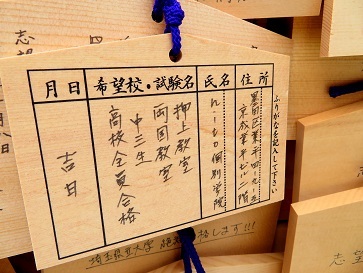 ふりがなを記入して下さい
住所
氏名
希望校・試験名
月日
京成業平ビル二階
個別学院
押上教室
両国教室
中三生
高校全員合格
吉日
埼玉県立大学
格します!!!
志望
志望